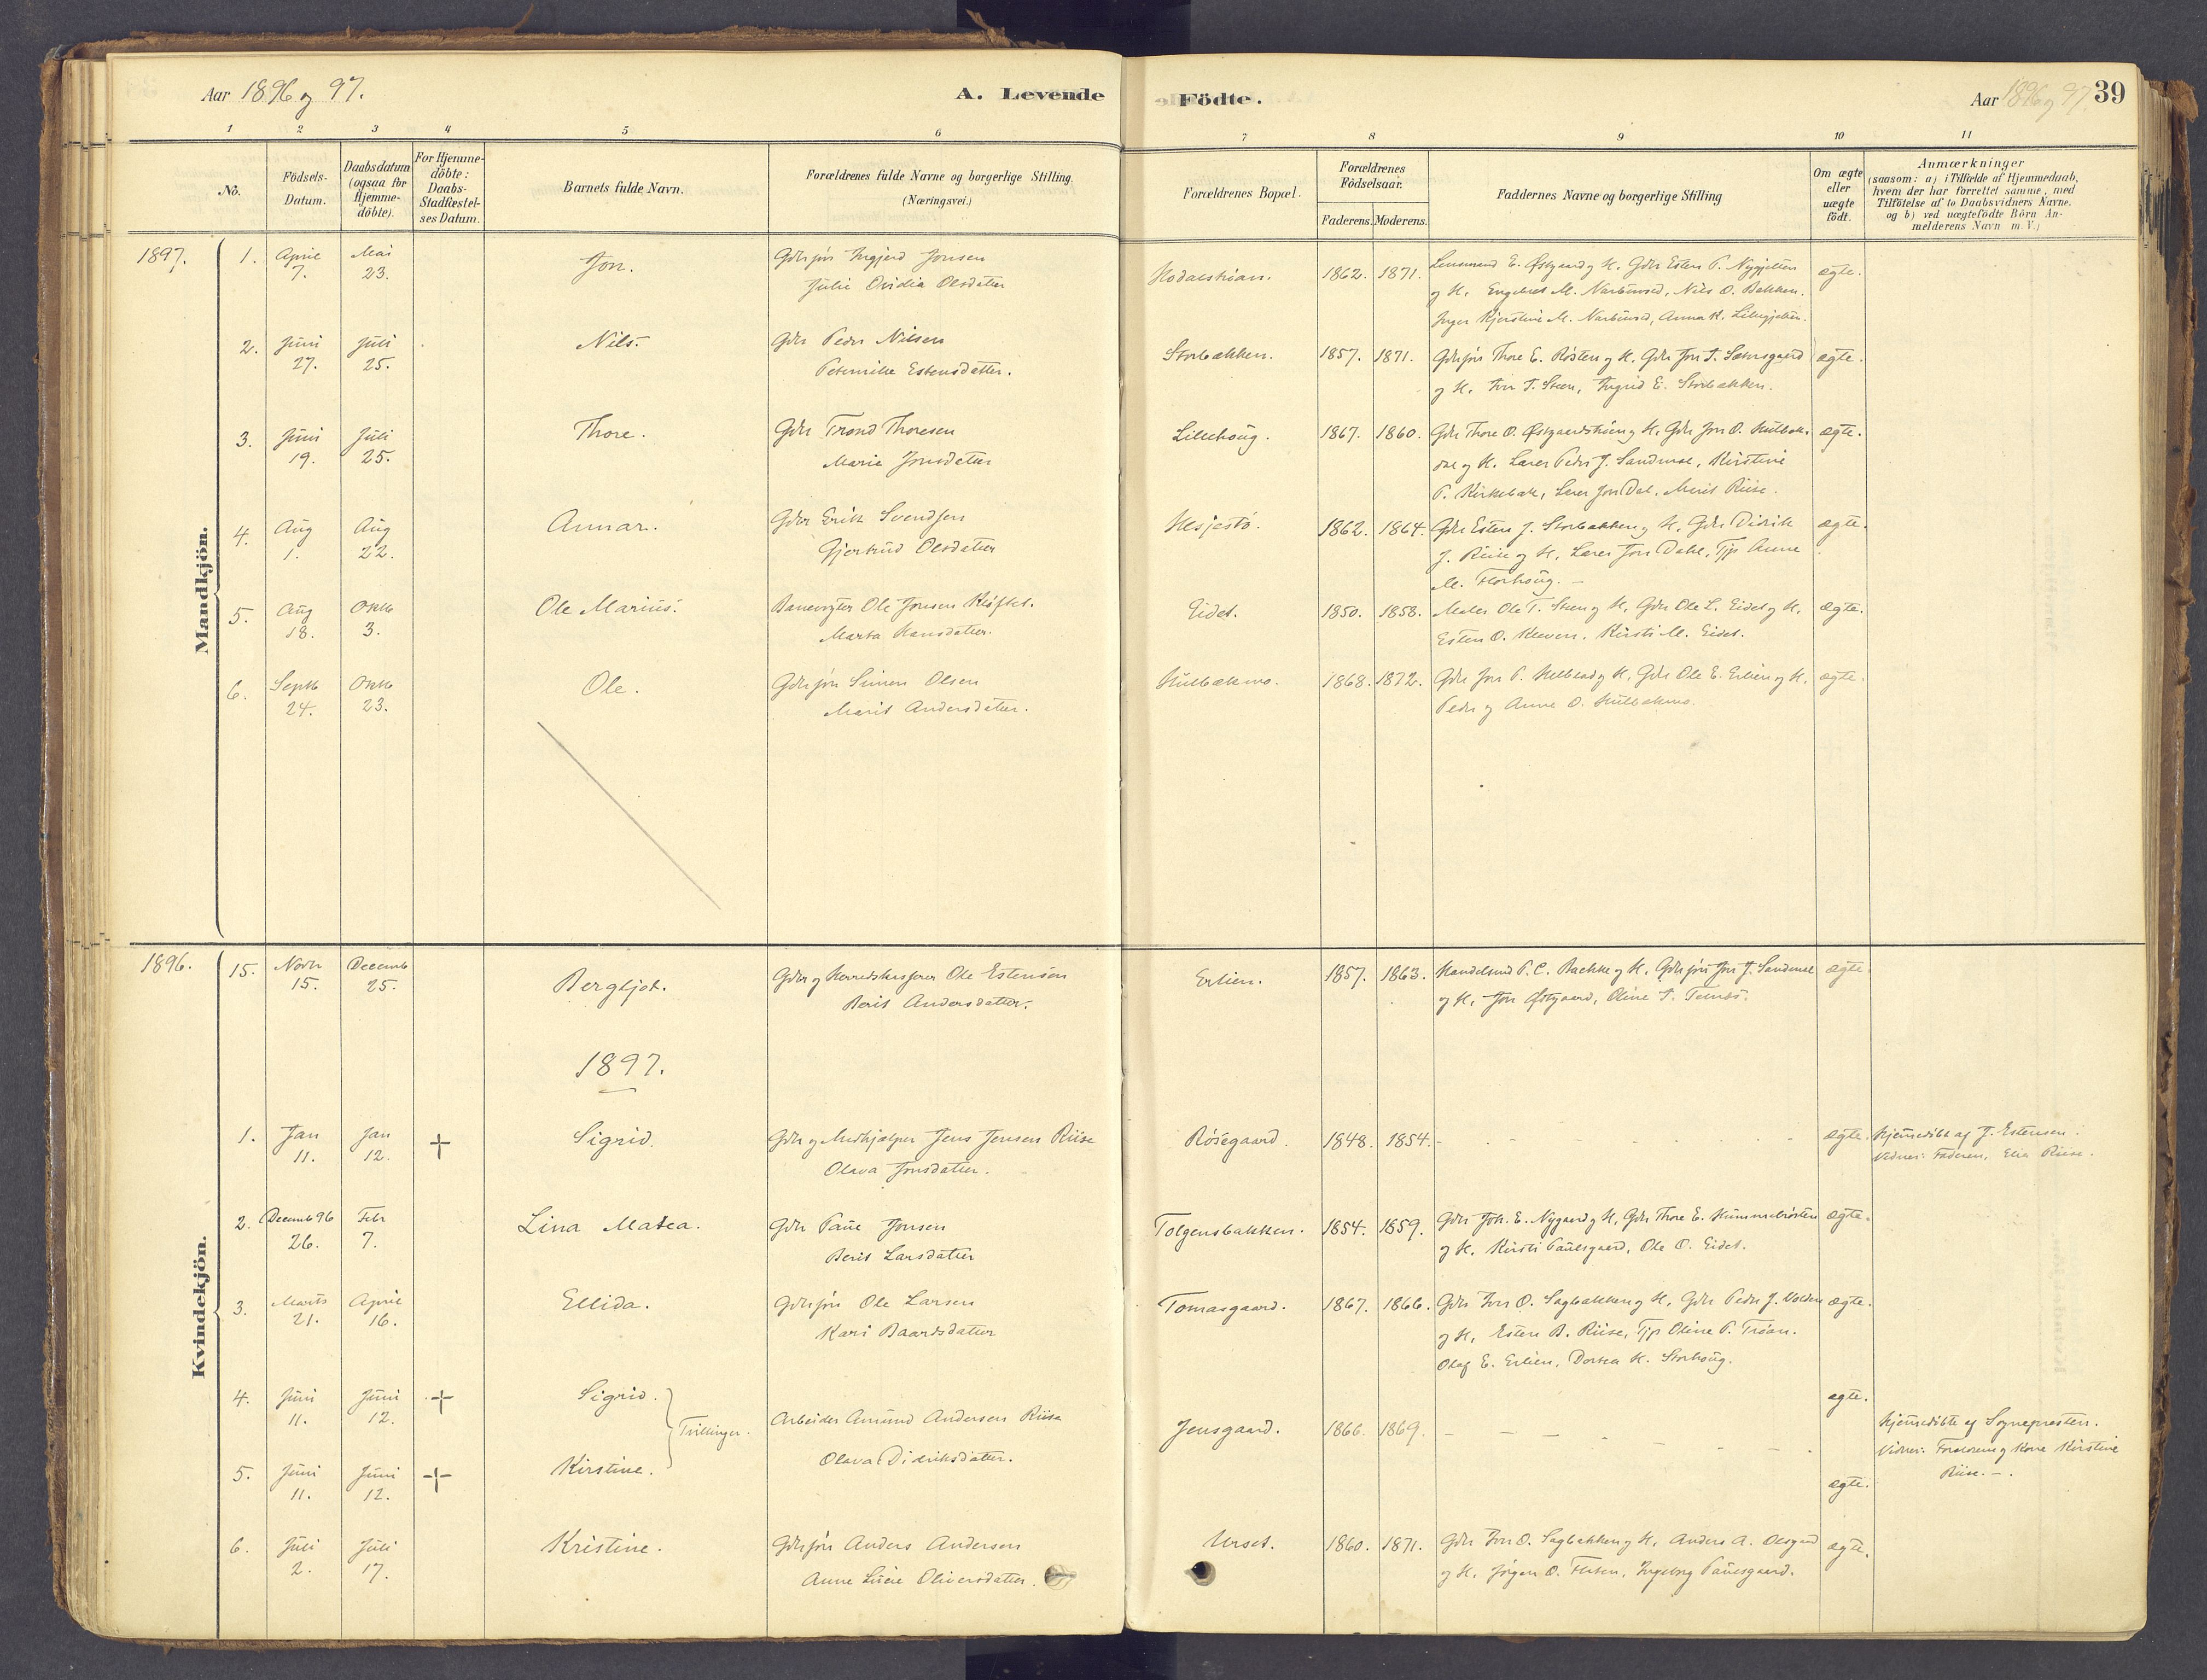 Aar 1896 og 97.
A. Levende Födte.
Aar 1896 og 97. 39
1 2 3 4 5 6 7 8 9 10 11
No.
Födsels-Datum.
Daabsdatum (ogsaa for Hjemme-döbte).
For Hjemme-döbte: Daabs-Stadfæstel-ses Datum.
Barnets fulde Navn.
Forældrenes fulde Navne og borgerlige Stilling.
(Næringsvei.)
Forældrenes Bopæl.
Forældrenes Födselsaar.
Faderens. Moderens.
Faddernes Navne og borgerlige Stilling
Om ægte eller uægte födt.
Anmærkninger
(saasom: a) i Tilfælde af Hjemmedaab,
hvem der har forrettet samme, med
Tilföielse af to Daabsvidners Navne.
og b) ved uægtefödte Börn An-
melderens Navn m.V.)
Mandkjön.
1897. 1. April 7. Mai 23. Jon. Gdrsjøn Ingjerd Jonsen
Julie Ovidia Olsdatter
1862. 1871. Lensmand E. Østgaard og K, Gdr Esten P. Nygjelten
og K, Engebret M. Narbuvoed, Nils O. Bakken.
Inger Kjerstine M. Narbuvoed, Anna K. Lillegjelten.
ægte.
2. Juni 27. Juli 25. Nils. Gdr Peder Nilsen
Petternille Estensdatter.
Storbækken. 1857. 1871. Gdrsjøn Thore E. Røsten og K. Gdr Jon T.
og K. Jon T. Steen, Ingrid E. Storbækken.
ægte.
3. Juni 19. Juli 25. Thore. Gdr Trond Thoresen
Marie Jonsdatter
Lillehoug. 1867. 1860. Gdr Thore O. Østgaardstrøen og K, Gdr Jon O.
og K. Lærer Peder J. Sandmæl, Kirstine
P. Kirkebæk, Lærer Jon Dal. Marit Riise.
ægte.
4. Aug 1. Aug 22. Annar. Gdr Erik Svendsen
Gjertrud Olsdatter
Hesjestø. 1862. 1864. Gdr Esten J. Storbækken og K, Gdr Didrik
J. Riise og K, Lærer Jon Dahl, Tjp Anne
M. Storhoug. –
ægte.
5. Aug 18. Oktb 3. Ole Marius. Banevogter Ole Jonsen Kløftet.
Marta Hansdatter.
Eidet. 1850. 1858. Maler Ole T. Steen og K, Gdr Ole L. Eidet og K,
Esten O. Kleven. Kirsti M. Eidet.
ægte.
6. Septb 24. Oktb 23. Ole. Gdrsjøn Simen Olsen
Marit Andersdatter.
Hulbækmo. 1868. 1872. Gdr Jon P. og K, Gdr Ole E. Erlien og K,
Peder og Anne O. Hulbækmo.
ægte.
Kvindekjön.
1896. 15. Novbr 15. Decemb 25. Bergljot. Gdr og Herredskasserer Ole Estensen
Berit Andersdatter.
Erlien. 1857. 1863. Handelsmd P. C. Bachke og K, Gdrsjøn Jon J. Sandmæl
og K, Jon Østgaard, Oline T.
ægte
1897.
1. Jan 11. Jan 12. + Sigrid. Gdr og Medhjælper Jens Jensen Riise
Olava Jonsdatter.
Røsegaard. 1848. 1854. – ægte. Hjemmedøbt af J. Estensen.
Vidner: Faderen, Riise.
2. Decemb 96 26. Febr 7. Lina Matea. Gdr Paul Jonsen
Berit Larsdatter
Tolgensbakken. 1854. 1859. Gdr Joh. E. Nygaard og K, Gdr Thore E. Hummelrøsten
og K. Kirsti Paulsgaard, Ole O. Eidet.
ægte.
3. Marts 21. April 16. Ellida. Gdrsjøn Ole Larsen
Kari Baardsdatter
Tomasgaard. 1867. 1866. Gdr Jon O. Sagbakken og K, Gdr Peder J. Volden
og K, Esten B. Riise, Tjp Oline P. Trøan.
Olaf E. Erlien, Dortea K. Storhoug.
ægte.
4. Juni 11. Juni 12. + Sigrid.
Trillinger.
Arbeider Amund Andersen Riise
Olava Didriksdatter.
Jensgaard. 1866. 1869. –
ægte.
Hjemmedøbte af Sognepresten.
Vidner: Forældrene og Kone Kirstine
Riise. –
5. Juni 11. Juni 12. + Kirstine. ægte.
6. Juli 2. Juli 17. Kristine. Gdrsjøn Anders Andersen
Anne Lucie Oliversdatter.
Urset. 1860. 1871. Gdr Jon O. Sagbakken og K, Anders A. Olsgaard
og K. Jörgen O. Ingeborg Paulsgaard.
ægte.